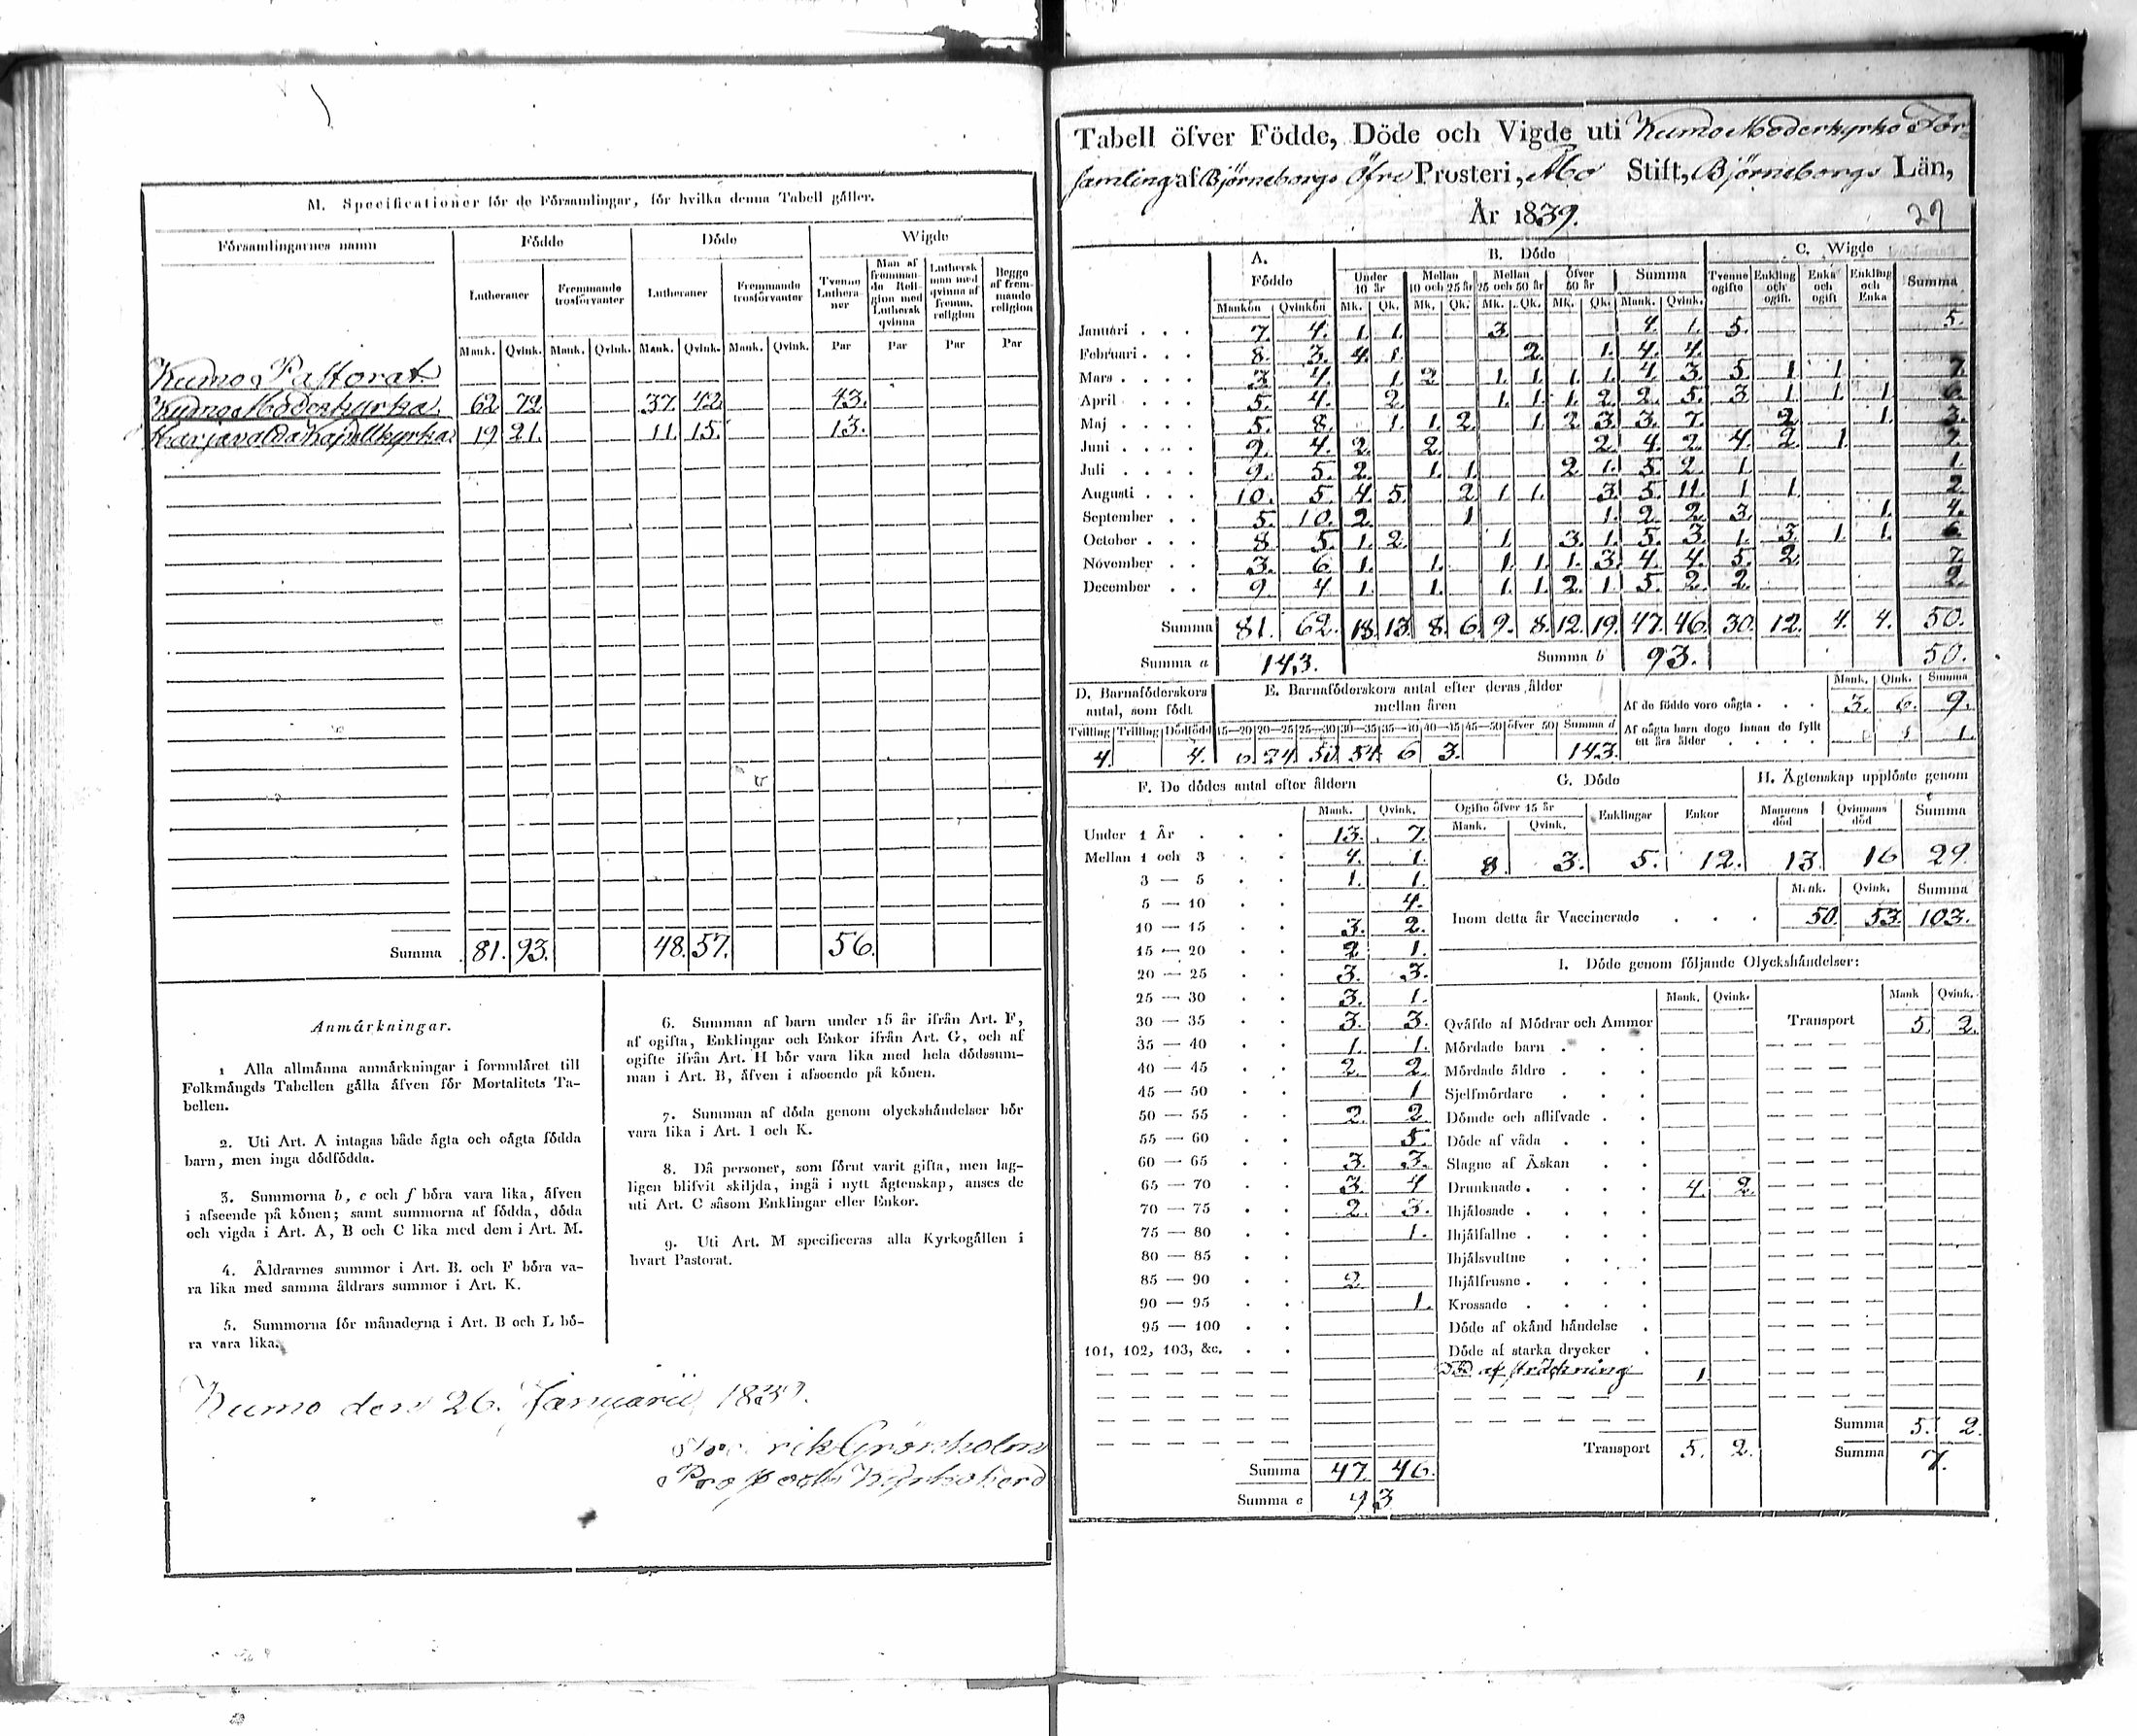 M. Specificationer för de Församlingar, för hvilka denna Tabell gäller.
Församlingarnes namn Födde Döde Wigde
Lutheraner Fremmande trosförvanter Lutheraner Fremmande trosförvanter Tvenne Lutheraner Man af fremmande Religion med Luthersk qvinna Luthersk man med qvinna af fremm. religion Begge af fremmande religion
Mank. Qvink. Mank. Qvink. Mank. Qvink. Mank. Qvink. Par Par Par Par
Kumo Pastorat.
Kumo Moderkyrka 62 72 37. 42 43.
Harjavalda Kapellkyrka 19 21. 11. 15. 13.
Summa 81. 93. 48. 57. 56.
Anmärkningar.
1 Alla allmänna anmärkningar i formuläret till
Folkmängds Tabellen gälla äfven för Mortalitets Ta-
bellen.
2. Uti Art. A intagas både ägta och oägta födda
barn, men inga dödfödda.
3. Summorna b, c och f böra vara lika, äfven
i afseende på könen; samt summorna af födda, döda
och vigda i Art. A, B och C lika med dem i Art. M.
4. Åldrarnes summor i Art. B. och F böra va-
ra lika med samma åldrars summor i Art. K.
5. Summorna för månaderna i Art. B och L bö-
ra vara lika.
6. Summan af barn under 15 år ifrån Art. F,
af ogifta, Enklingar och Enkor ifrån Art. G, och af
ogifte ifrån Art. H bör vara lika med hela dödssum-
man i Art. B, äfven i afseende på könen.
7. Summan af döda genom olyckshändelser bör
vara lika i Art. I och K.
8. Då personer, som förut varit gifta, men lag-
ligen blifvit skiljda, ingå i nytt ägtenskap, anses de
uti Art. C såsom Enklingar eller Enkor.
9. Uti Art. M specificeras alla Kyrkogällen i
hvart Pastorat.
Kumo den 26. Januarii
Grönholm
Prost och Kyrkoherd
Tabell öfver Födde, Döde och Vigde uti Kumo Moderkyrko För-
samling af Björneborgs Öfre Prosteri, Åbo Stift, Björneborgs Län,
År 1839. 27
A. Födde B. Döde C. Wigde
Under 10 år Mellan 10 och 25 år Mellan 25 och 50 år Öfver 50 år Summa Tvenne ogifte Enkling och ogift. Enka och ogift Enkling och Enka Summa
Mankön Qvinkön Mk. Qk. Mk. Qk. Mk. Qk. Mk. Qk. Mank. Qvink.
Januari 7. 4. 1. 1. 3. 4. 1. 5. 5.
Februari 8. 3. 4. 1. 2. 1. 4. 4.
Mars 3 4. 1. 2 1. 1. 1. 1. 4 3. 5 1. 1. 7.
April 5. 4. 2. 1. 1. 1. 2. 2. 5. 3 1. 1. 1. 6.
Maj 5. 8. 1. 1. 2. 1. 2 3. 3. 7. 2. 1. 3.
Juni 9. 4. 2. 2. 2. 4. 2. 4. 2. 1. 7.
Juli 9. 5. 2. 1. 1. 2. 1. 5. 2. 1. 1.
Augusti 10. 5. 4. 5. 2 1. 1. 3. 5. 11. 1 1. 2.
September 5. 10. 2. 1 1. 2. 2. 3. 1. 4.
October 8. 5. 1. 2. 1. 3. 1. 5. 3. 1. 3. 1. 1. 6
November 3. 6. 1. 1. 1. 1. 1. 3. 4. 4. 5. 2. 7.
December 9. 4. 1. 1. 1. 1. 2. 1. 5. 2. 2. 2.
Summa 81. 62. 18. 13. 8. 6. 9. 8. 12. 19. 47. 46. 30. 12. 4. 4. 50.
Summa a 143. Summa b 93. 50.
D. Barnaföderskors antal, som födt
E. Barnaföderskors antal efter deras ålder mellan åren
Tvilling Trilling Dödfödd 15—20 20—25 25—30 30—35 35—40 40—45 45—50 öfver 50 Summa d
4. 4. 6 24. 50. 54. 6 3. 143.
Mank. Qink. Summa
Af de födde voro oägta 3. 6. 9.
Af oägta barn dogo innan de fyllt
ett års ålder 1 1.
F. De dödes antal efter åldern
Mank. Qvink.
Under 1 År 13. 7.
Mellan 1 och 3 4. 1.
3 — 5 1. 1.
5 — 10 4.
10 — 15 3. 2.
15 — 20 2 1.
20 — 25 3. 3.
25 — 30 3. 1.
30 — 35 3. 3.
35 — 40 1. 1.
40 — 45 2. 2.
45 — 50 1
50 — 55 2. 2.
55 — 60 5.
60 — 65 3. 3.
65 — 70 3. 4
70 — 75 2. 3.
75 — 80 1.
80 — 85
85 — 90 2.
90 — 95 1.
95 — 100
101, 102, 103, &c.
Summa 47. 46.
Summa c 93
G. Döde
Ogifte öfver 15 år Enklingar Enkor
Mank. Qvink.
8. 3. 5. 12.
H. Ägtenskap upplöste genom
Mannens död Qvinnans död Summa
13. 16 29.
Mank. Qvink. Summa
Inom detta år Vaccinerade 50. 53. 103.
I. Döde genom följande Olyckshändelser:
Mank. Qvink. Mank Qvink.
Qväfde af Mödrar och Ammor Transport 5. 2.
Mördade barn
Mördade äldre
Sjelfmördare
Dömde och aflifvade
Döde af våda
Slagne af Åskan
Drunknade 4. 2.
Ihjälosade
Ihjälfallne
Ihjälsvultne
Ihjälfrusne
Krossade
Döde af okänd händelse
Döde af starka drycker
af 1
Summa 5. 2.
Transport 5. 2. Summa 7.